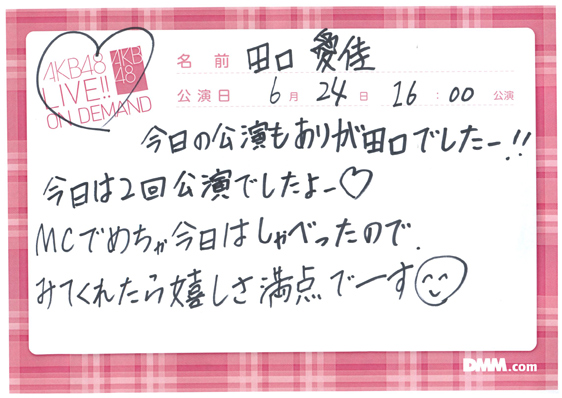 AKB48
LIVE!!
ON DEMAND
AKB
48
名前 田口 愛佳
公演日 6月 24日 16:00 公演
今日の公演もありが田口でしたー!!
今日は2回公演でしたよー♡
MCでめちゃ今日はしゃべったので、
みてくれたら嬉しさ満点でーす
DMM.com